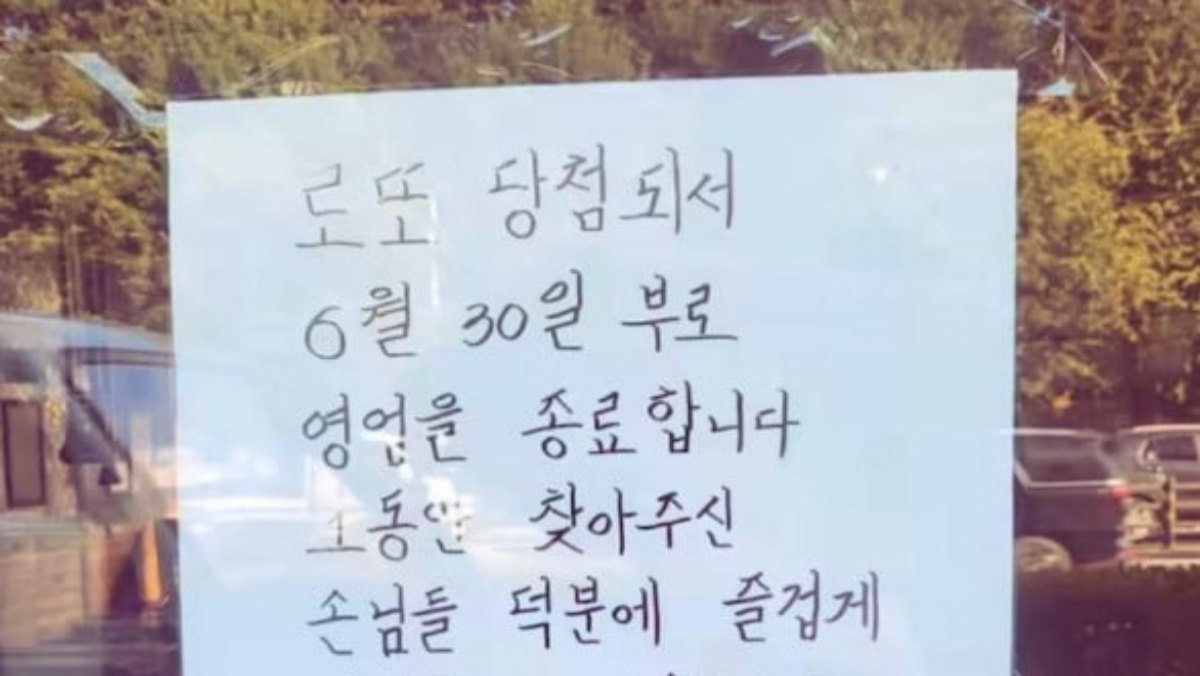 로또 당첨되서
6월 30일 부로
영업을 종료합니다
찾아주신
손님들 덕분에 즐겁게